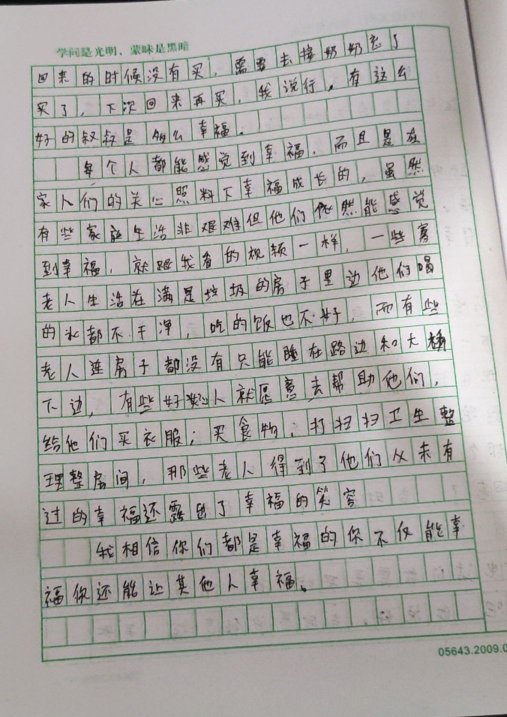 学问是光明，蒙昧是黑暗
回来的时候没有买，需要去接奶奶忘了
买了，下次回来再买，我说行。有这么
好的叔叔是多么幸福。
每个人都能感觉到幸福，而且是在
家人们的关心照料下幸福成长的，虽然
有些家庭生活非艰难但他们依然能感觉
到幸福，就跟我看的视频一样，一些寡
老人生活在满是垃圾的房子里边他们喝
的水都不干净，吃的饭也不好，而有些
老人连房子都没有只能睡在路边和大桥
下边，有些好心人就愿意去帮助他们，
给他们买衣服；买食物，打扫扫卫生整
理整房间，那些老人得到了他们从未有
过的幸福还露出了幸福的笑容
我相信你们都是幸福的你不仅能幸
福你还能让其他人幸福。
05643.2009.0